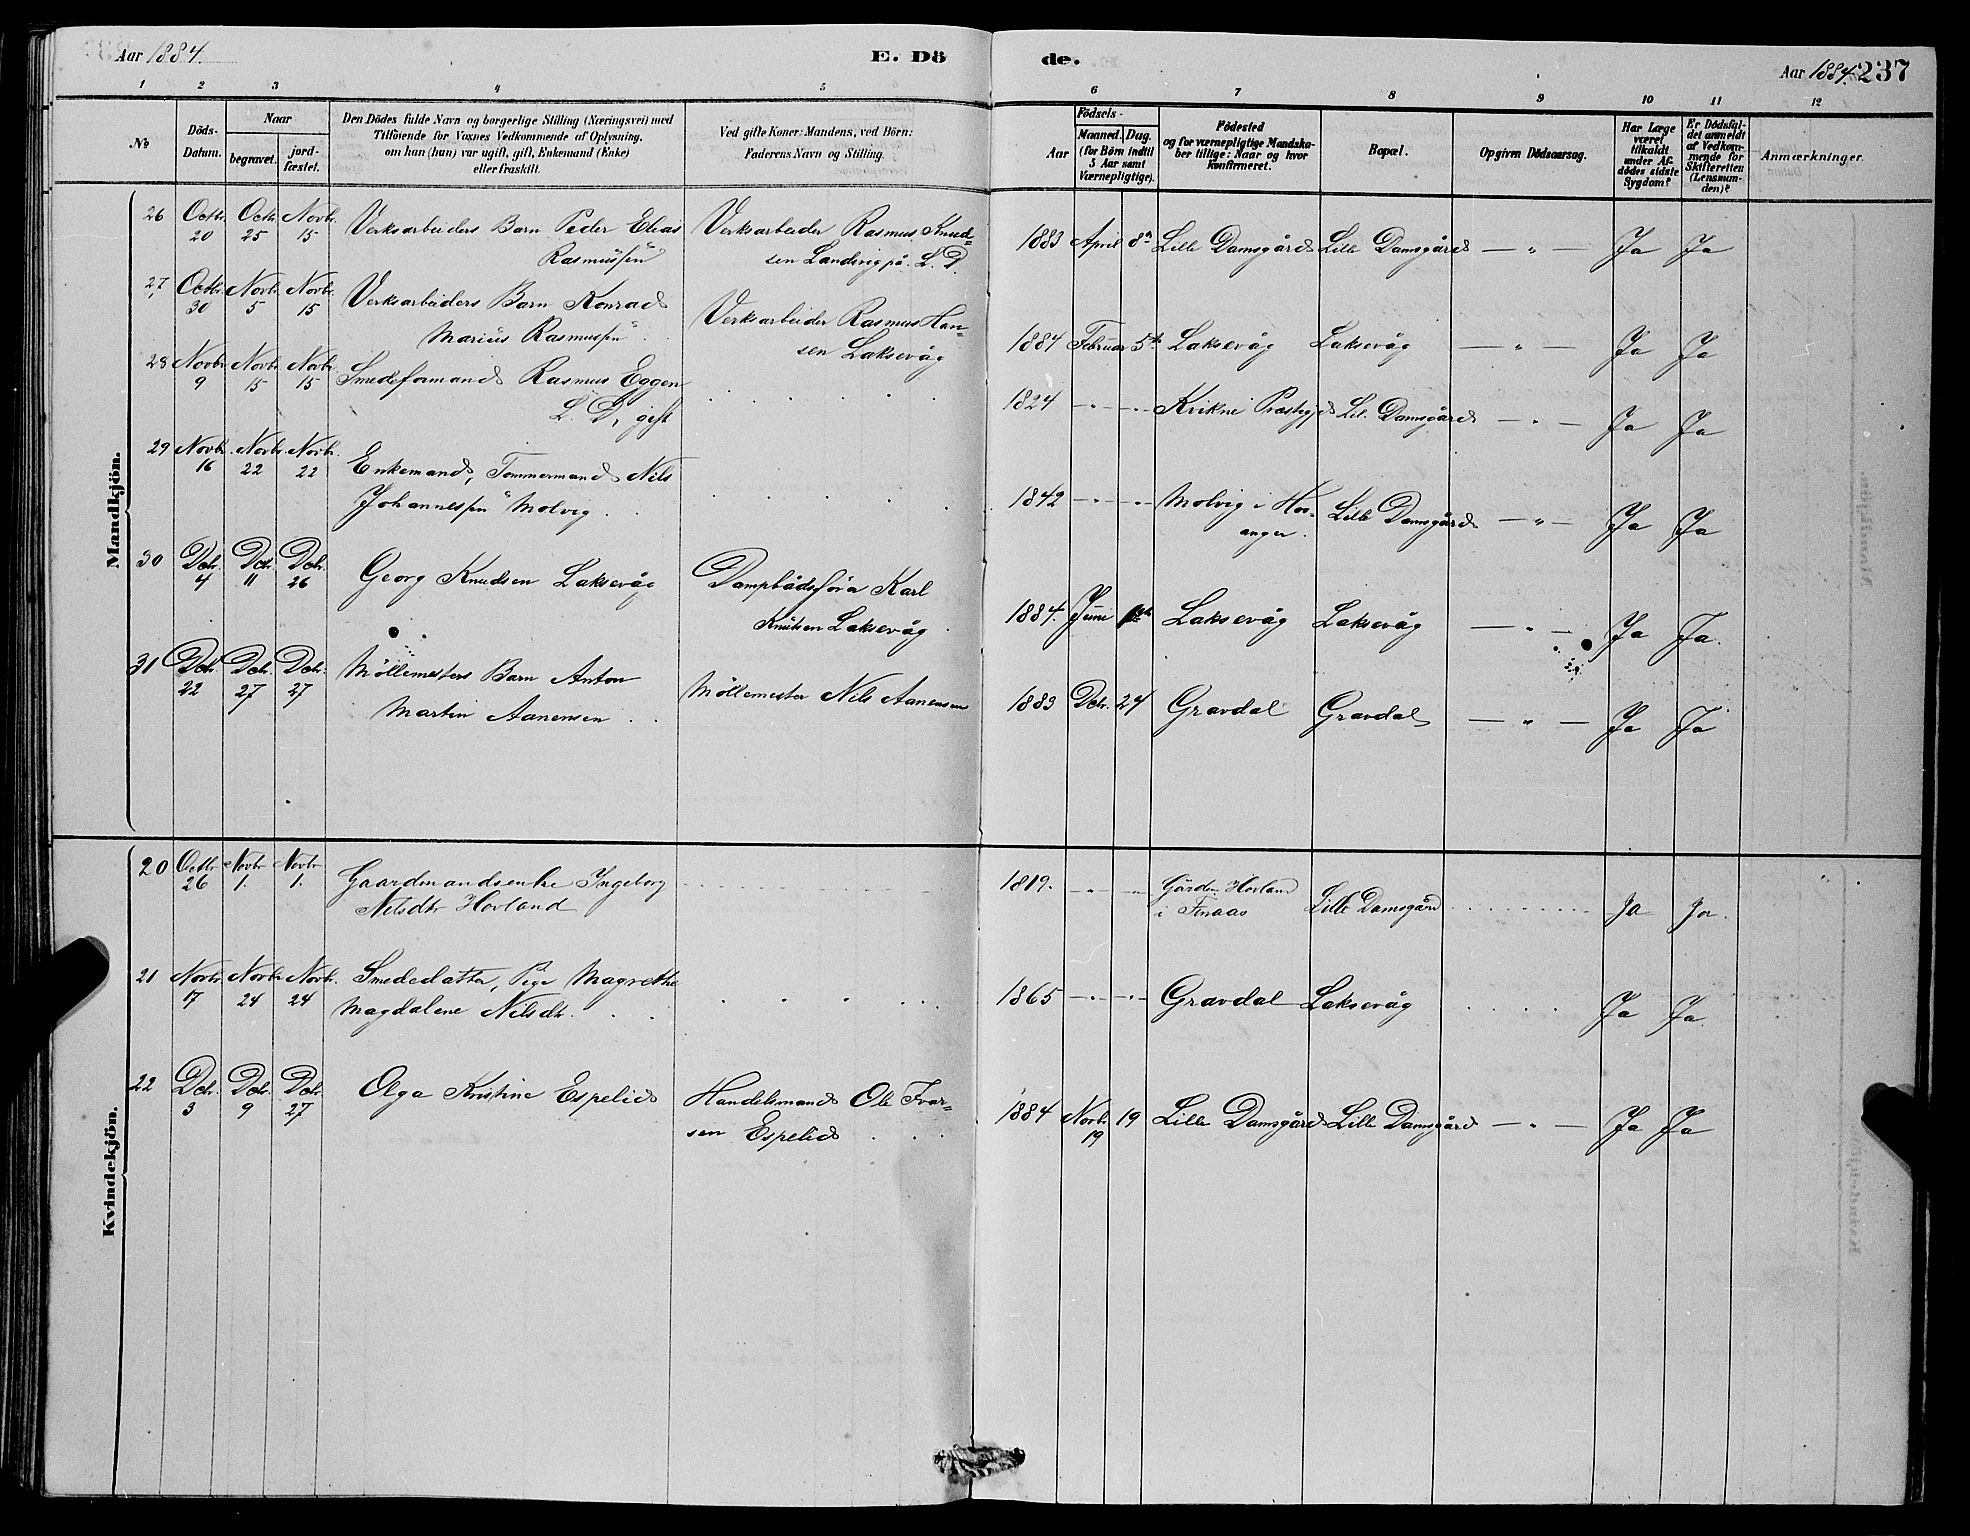 Aar 1884.
E. Dö
de.
Aar 1884. 237
1 2 3 4 5 6 7 8 9 10 11 12
No
Döds-
Datum.
Naar
begravet.
jord-
fæstet.
Den Dödes fulde Navn og borgerlige Stilling (Næringsvei) med
Tilföiende for Voxnes Vedkommende af Oplysning,
om han (hun) var ugift, gift, Enkemand (Enke)
eller fraskilt.
Ved gifte Koner: Mandens, ved Börn:
Faderens Navn og Stilling.
Födsels-
Aar
Maaned. Dag.
(for Börn indtil
5 Aar samt
Værnepligtige).
Födested
og for værnepligtige Mandska-
ber tillige: Naar og hvor
konfirmeret.
Bopæl.
Opgiven Dödsaarsag.
Har Læge
været
tilkaldt
under Af-
dödes sidste
Sygdom?
Er Dödsfal-
det anmeldt
af Vedkom-
mende for
Skifteretten
(Lensman-
den)?
Anmærkninger.
Mandkjön.
26 Octbr. 20 Octbr. 25 Novbr. 15 Verksarbeiders Barn Peder Elias
Rasmussen
Verksarbeider Rasmus Knud-
sen Landvig på L. D.
1883 April 8de Lille Damsgård Lille Damsgård — " — Ja Ja
27 Octbr. 30 Novbr. 5 Novbr. 15 Verksarbeiders Barn Konrad
Marius Rasmussen
Verksarbeider Rasmus Han-
sen Laksevåg
1884 Februar 5te Laksevåg Laksevåg — " — Ja Ja
28 Novbr. 9 Novbr. 15 Novbr. 15 Smedeformand Rasmus Eggen
L. D, gift
1824 — " — " — Kvikne Præstegjd Lil. Damsgård — " — Ja Ja
29 Novbr. 16 Novbr. 22 Novbr. 22 Enkemand, Tømmermand Nils
Johannessen Molvig
1842 — " — " — Molvig i Hos-
anger. Lille Damsgård — " — Ja Ja
30 Dcbr. 4 Dcbr. 11 Dcbr. 26 Georg Knudsen Laksevåg
Dampbådsfører Karl
Knutsen Laksevåg
1884. Juni Laksevåg Laksevåg — " — Ja Ja.
31 Dcbr. 22 Dcbr. 27 Dcbr. 27 Møllemesters Barn Anton
Martin Aanensen
Møllemester Nils Aanensen
1883 Dcbr. 24 Gravdal Gravdal — " — Ja Ja
Kvindekjön.
20 Octbr 26 Novbr 1. Novbr 1. Gaardmandsenke Ingeborg
Nilsdtr Hovland
1819. " " Gården Hovland
i Finaas Lille Damsgård Ja Ja.
21 Novbr 17 Novbr 24 Novbr. 24 Smededatter, Pige Magrethe
Magdalene Nilsdtr.
1865 — " — " — Gravdal Laksevåg Ja Ja.
22 Dcbr. 3 Dcbr. 9 Dcbr. 27 Olga Kristine Espelid
Handelsmand Ole Ivar-
sen Espelid
1884 Novbr 19 19 Lille Damsgård Lille Damsgård — " — Ja Ja